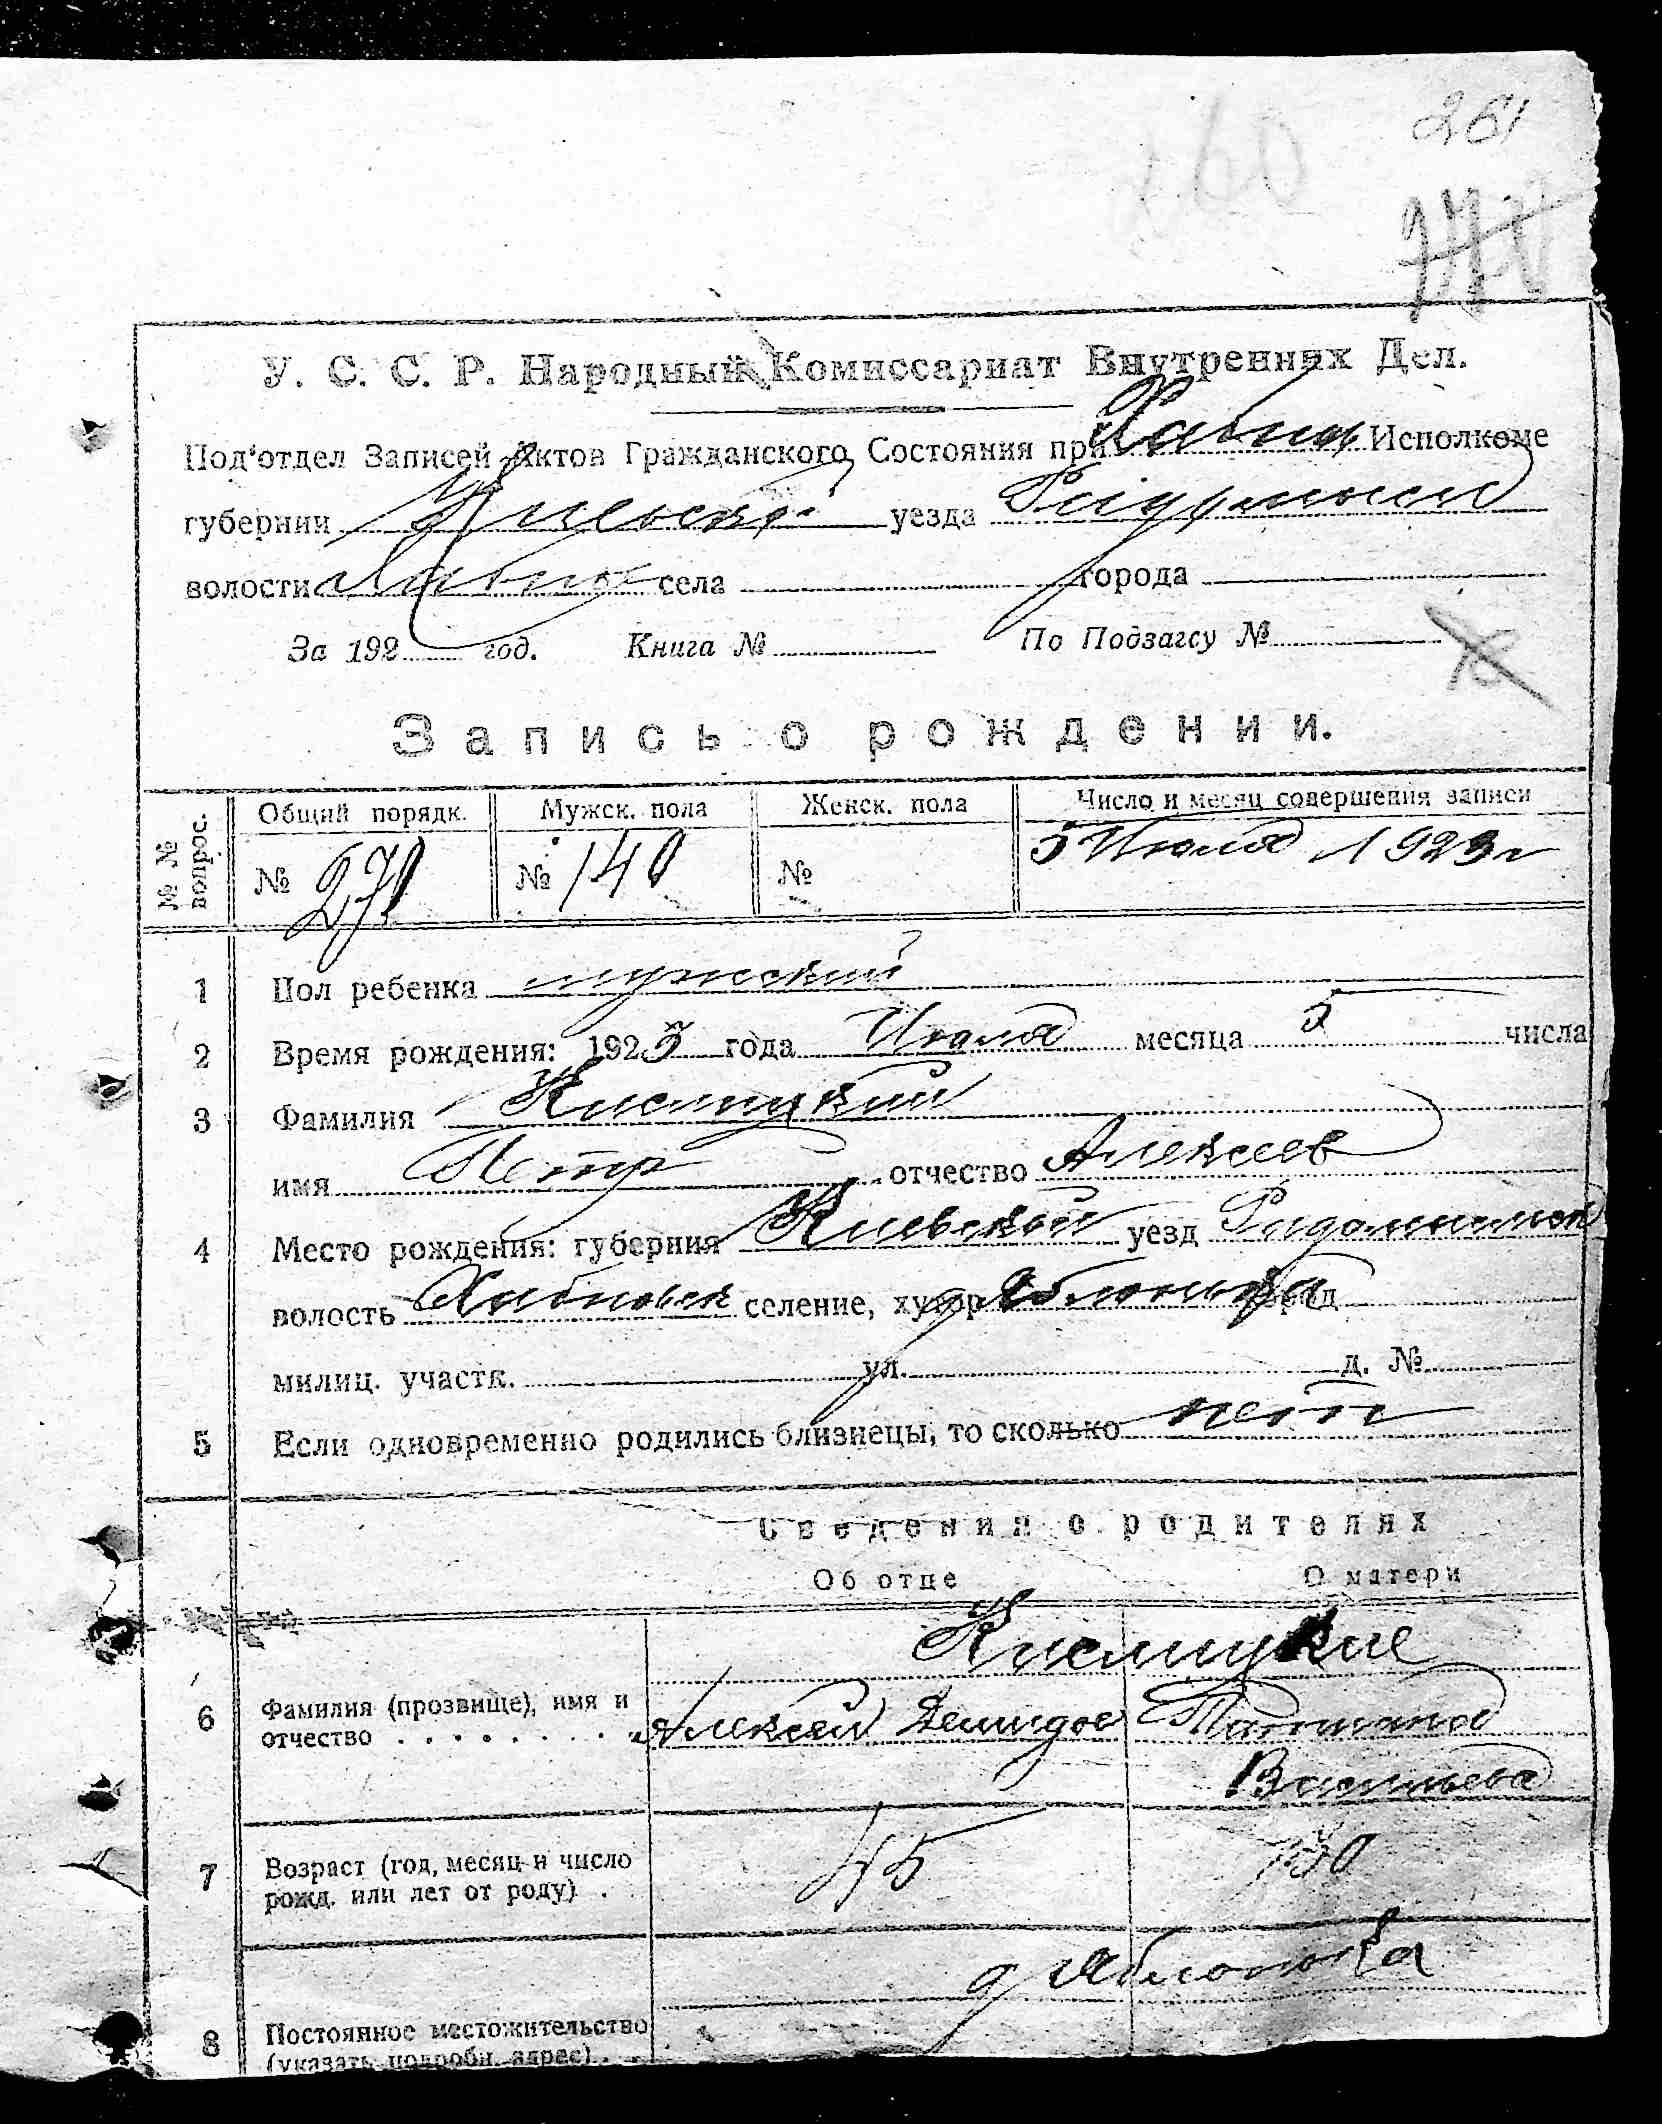 261
260
У. С. С. Р. Народный Комиссариат Внутренних Дел.
Под'отдел Записей Актов Гражданского Состояния при Хабнов Исполкоме
губернии Киевской уезда
волости села города
За 192 год. Книга № По Подзагсу №
Запись о рождении.
№ № вопрос. Общий порядк. Мужск. пола Женск. пола Число и месяц совершения записи
№ 270 № 140 № 5 Июля 1923 г
1 Пол ребенка мужский
2 Время рождения: 1923 года Июля месяца 5 числа
3 Фамилия Кислицкий
имя Петр отчество Алексеев
4 Место рождения: губерния Киевской уезд Радомысльск
волость Хабновск селение, хутор д Яблонька город
милиц. участк. ул. д. №
5 Если одновременно родились близнецы, то сколько нет
Сведения о родителях
Об отце О матери
Кислицкие
6 Фамилия (прозвище), имя и
отчество Алексей Демидов Татьяна
Васильева
7 Возраст (год, месяц и число
рожд. или лет от роду) 45 30
д Яблонька
8 Постоянное местожительство
(указать подробн. адрес)